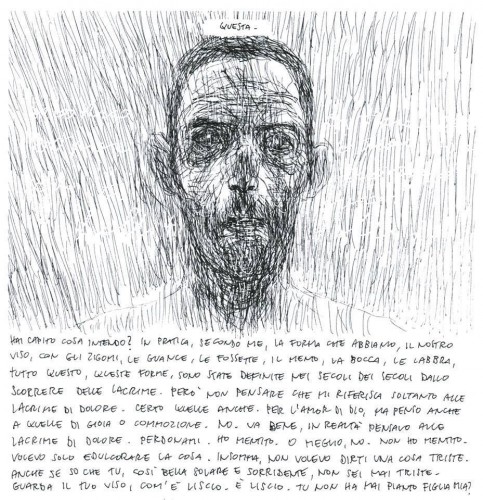 QUESTA.
HAI CAPITO COSA INTENDO? IN PRATICA, SECONDO ME, LA FORMA CHE ABBIAMO, IL NOSTRO
VISO, CON GLI ZIGOMI, LE GUANCE, LE FOSSETTE, IL MENTO, LA BOCCA, LE LABBRA,
TUTTO QUESTO, QUESTE FORME, SONO STATE DEFINITE NEI SECOLI DEI SECOLI DALLO
SCORRERE DELLE LACRIME. PERÒ NON PENSARE CHE MI RIFERISCA SOLTANTO ALLE
LACRIME DI DOLORE. CERTO QUELLE ANCHE. PER L'AMOR DI DIO, MA PENSO ANCHE
A QUELLE DI GIOIA O COMMOZIONE. NO. VA BENE, IN REALTÀ PENSAVO ALLE
LACRIME DI DOLORE. PERDONAMI. HO MENTITO. O MEGLIO, NO. NON HO MENTITO.
VOLEVO SOLO EDULCORARE LA COSA. INSOMMA, NON VOLEVO DIRTI UNA COSA TRISTE.
ANCHE SE SO CHE TU, COSÌ BELLA SOLARE E SORRIDENTE, NON SEI MAI TRISTE.
GUARDA IL TUO VISO, COM'È LISCIO. È LISCIO. TU NON HAI MAI PIANTO FIGLIA MIA?